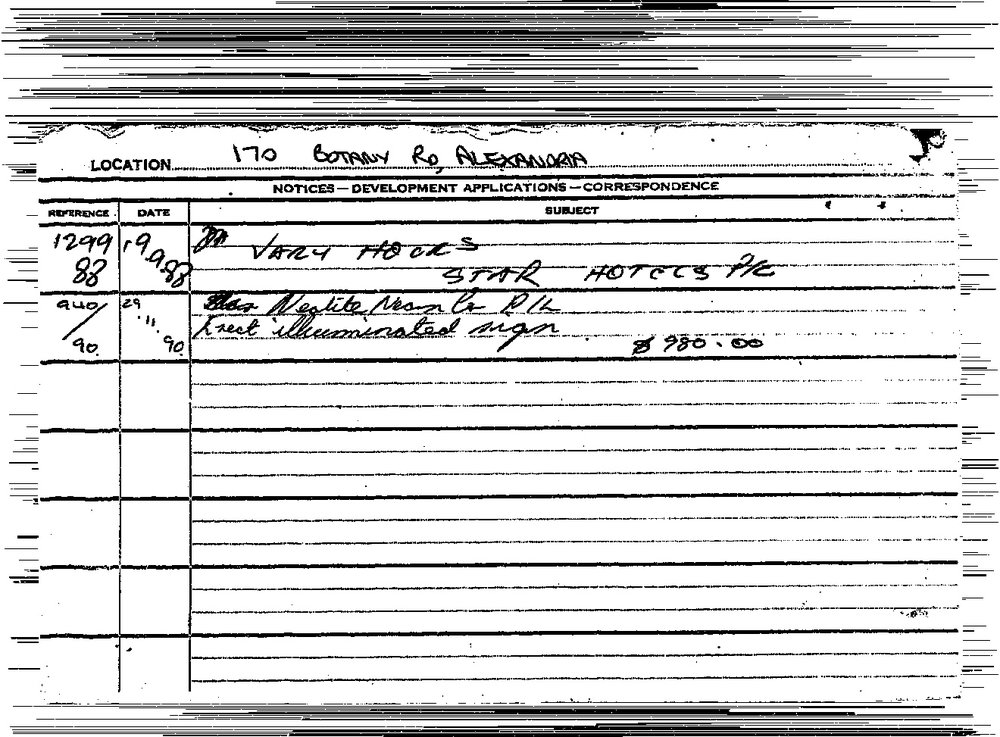 LOCATION 170 BOTANY RD, ALEXANDRIA
NOTICES—DEVELOPMENT APPLICATIONS—CORRESPONDENCE
REFERENCE. DATE SUBJECT
1299 19 DA VARY HOURS
88 .9.88 STAR HOTELS P/L
940/ 29 Neolite Neon Co P/L
.11. Erect illuminated sign
90. 90. $ 980.00